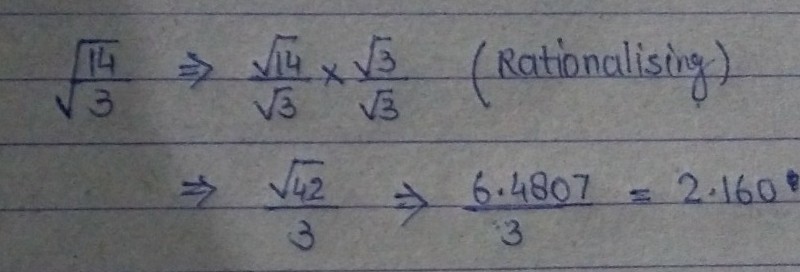 √14/3 ⇒ √14/√3 × √3/√3 (Rationalising)
⇒ √42/3 ⇒ 6.4807/3 = 2.160